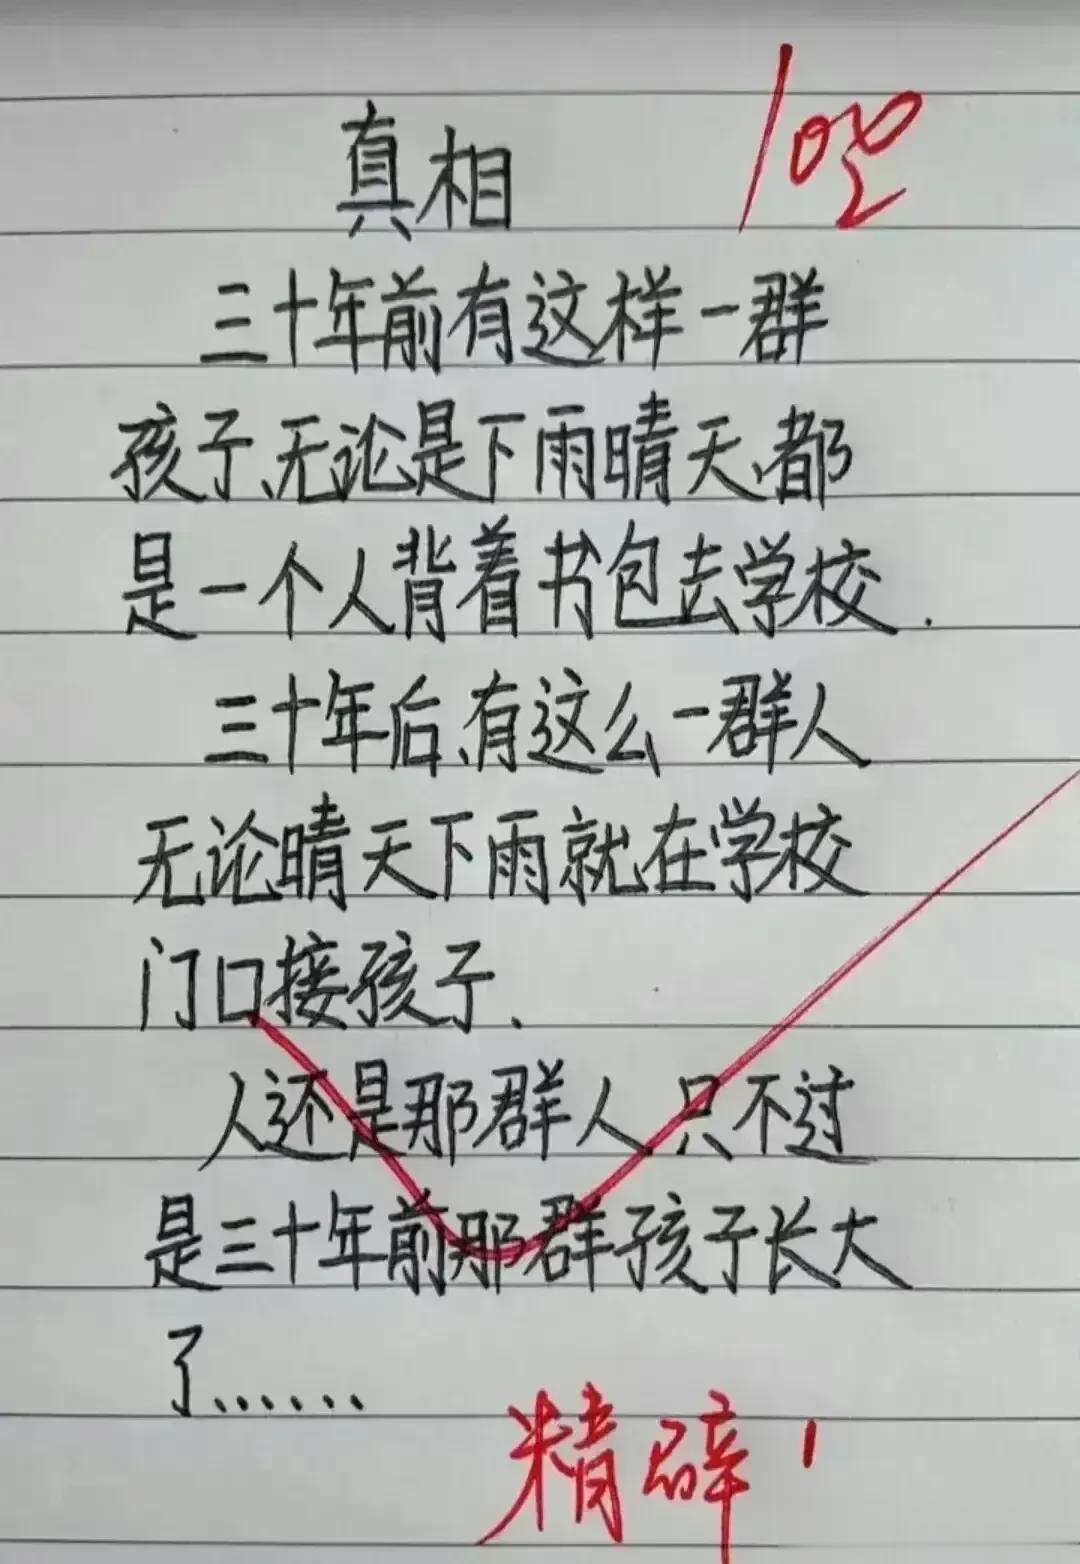 真相
100
三十年前有这样一群
孩子、无论是下雨晴天、都
是一个人背着书包去学校.
三十年后、有这么一群人
无论晴天下雨就在学校
门口接孩子、
人还是那群人、只不过
是三十年前那群孩子长大
了......
精辟!